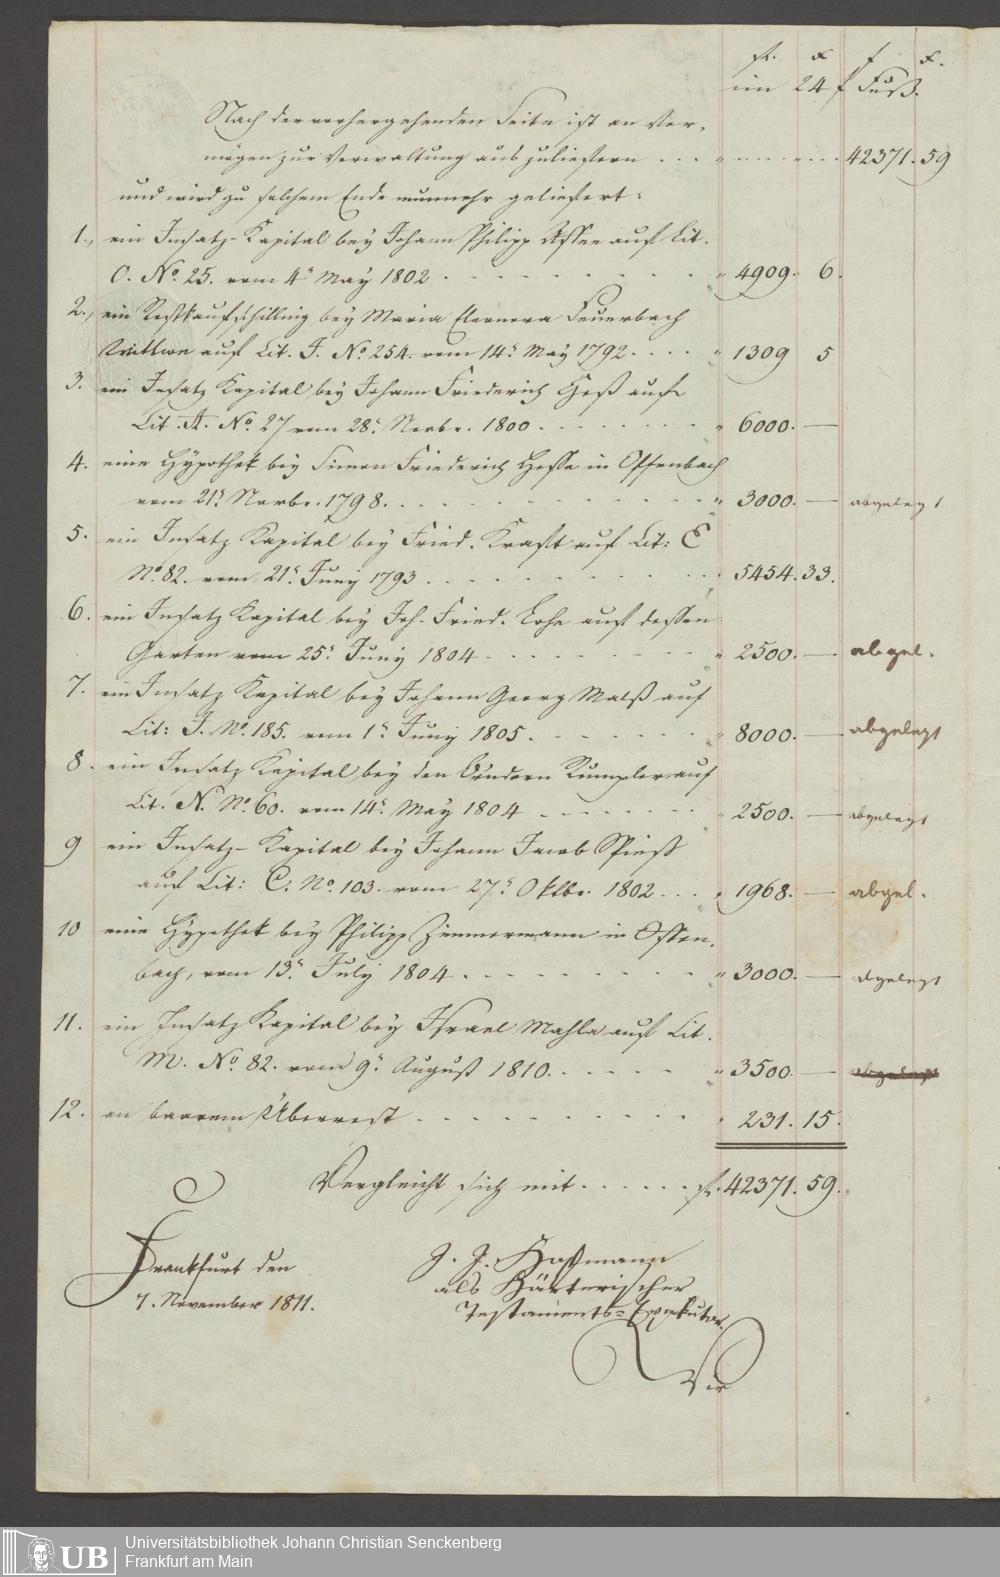 fl. x f x.
im 24 f Fuß.
Nach der vorhergehenden Seite ist an Ver-
mögen zur Verwaltung auszuliefern . . . " . . . . " . . . 42371. 59
und wird zu solchem Ende nunmehr geliefert:
1., ein Insatz-Kapital bey Johann Philipp auf Lit.
O. No. 25. vom 4n May 1802 . . . . . . . " 4909. 6.
2., ein Restkaufschilling bey Maria Eleonora Feuerbach
Wittwe auf Lit. J. No 254. vom 14n May 1792 . . . . " 1309 5
3. ein Insatz Kapital bey Johann Friederich Heß auf
Lit. A. No. 27 vom 28n Novbr. 1800 . . . . . . . " 6000. —
4. eine Hÿpothek bey Simon Friederich Hesse in Offenbach
vom 21n Novbr. 1798. . . . . . . . . . " 3000. — abgelegt
5. ein Insatz Kapital bey Fried. Kraft auf Lit: E
No. 82. vom 21n Juny 1793 . . . . . . . . " 5454. 33.
6. ein Insatz Kapital bey Joh. Fried. Lohe auf dessen
Garten vom 25n Juny 1804 . . . . . . . " 2500. — abgel.
7. ein Insatz Kapital bey Johann Georg Malß auf
Lit: J. No. 185. vom 1n Juny 1805 . . . . . . " 8000. — abgelegt
8. ein Insatz Kapital bey den Brüdern Rumpler auf
Lit. N. No. 60. vom 14n May 1804 . . . . . . " 2500. — abgelegt
9 ein Insatz-Kapital bey Johann Jacob Spieß
auf Lit: C. No. 103. vom 27n Oktbr. 1802 . . . " 1968. — abgel.
10 eine Hÿpothek bey Philipp Zimmermann in Offen-
bach, vom 13n July 1804 . . . . . . . . " 3000. — abgelegt
11. ein Insatz Kapital bey Israel Mahla auf Lit.
M. No. 82. vom 9n August 1810. . . . . . " 3500. — abgelegt
12. an baarem Überrest . . . . . . . . " 231. 15.
Vergleicht sich mit . . . . . . fl. 42371. 59.
Frankfurt den
7. November 1811.
J. J. Hoffmann
als Härterischer
Testaments-Exekutor.
Wir
Universitätsbibliothek Johann Christian Senckenberg
Frankfurt am Main
UB